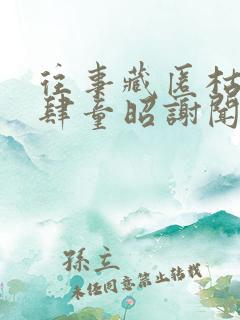 往事藏匿枯
肆童昭謝聞
孫立
未经同意禁止转载